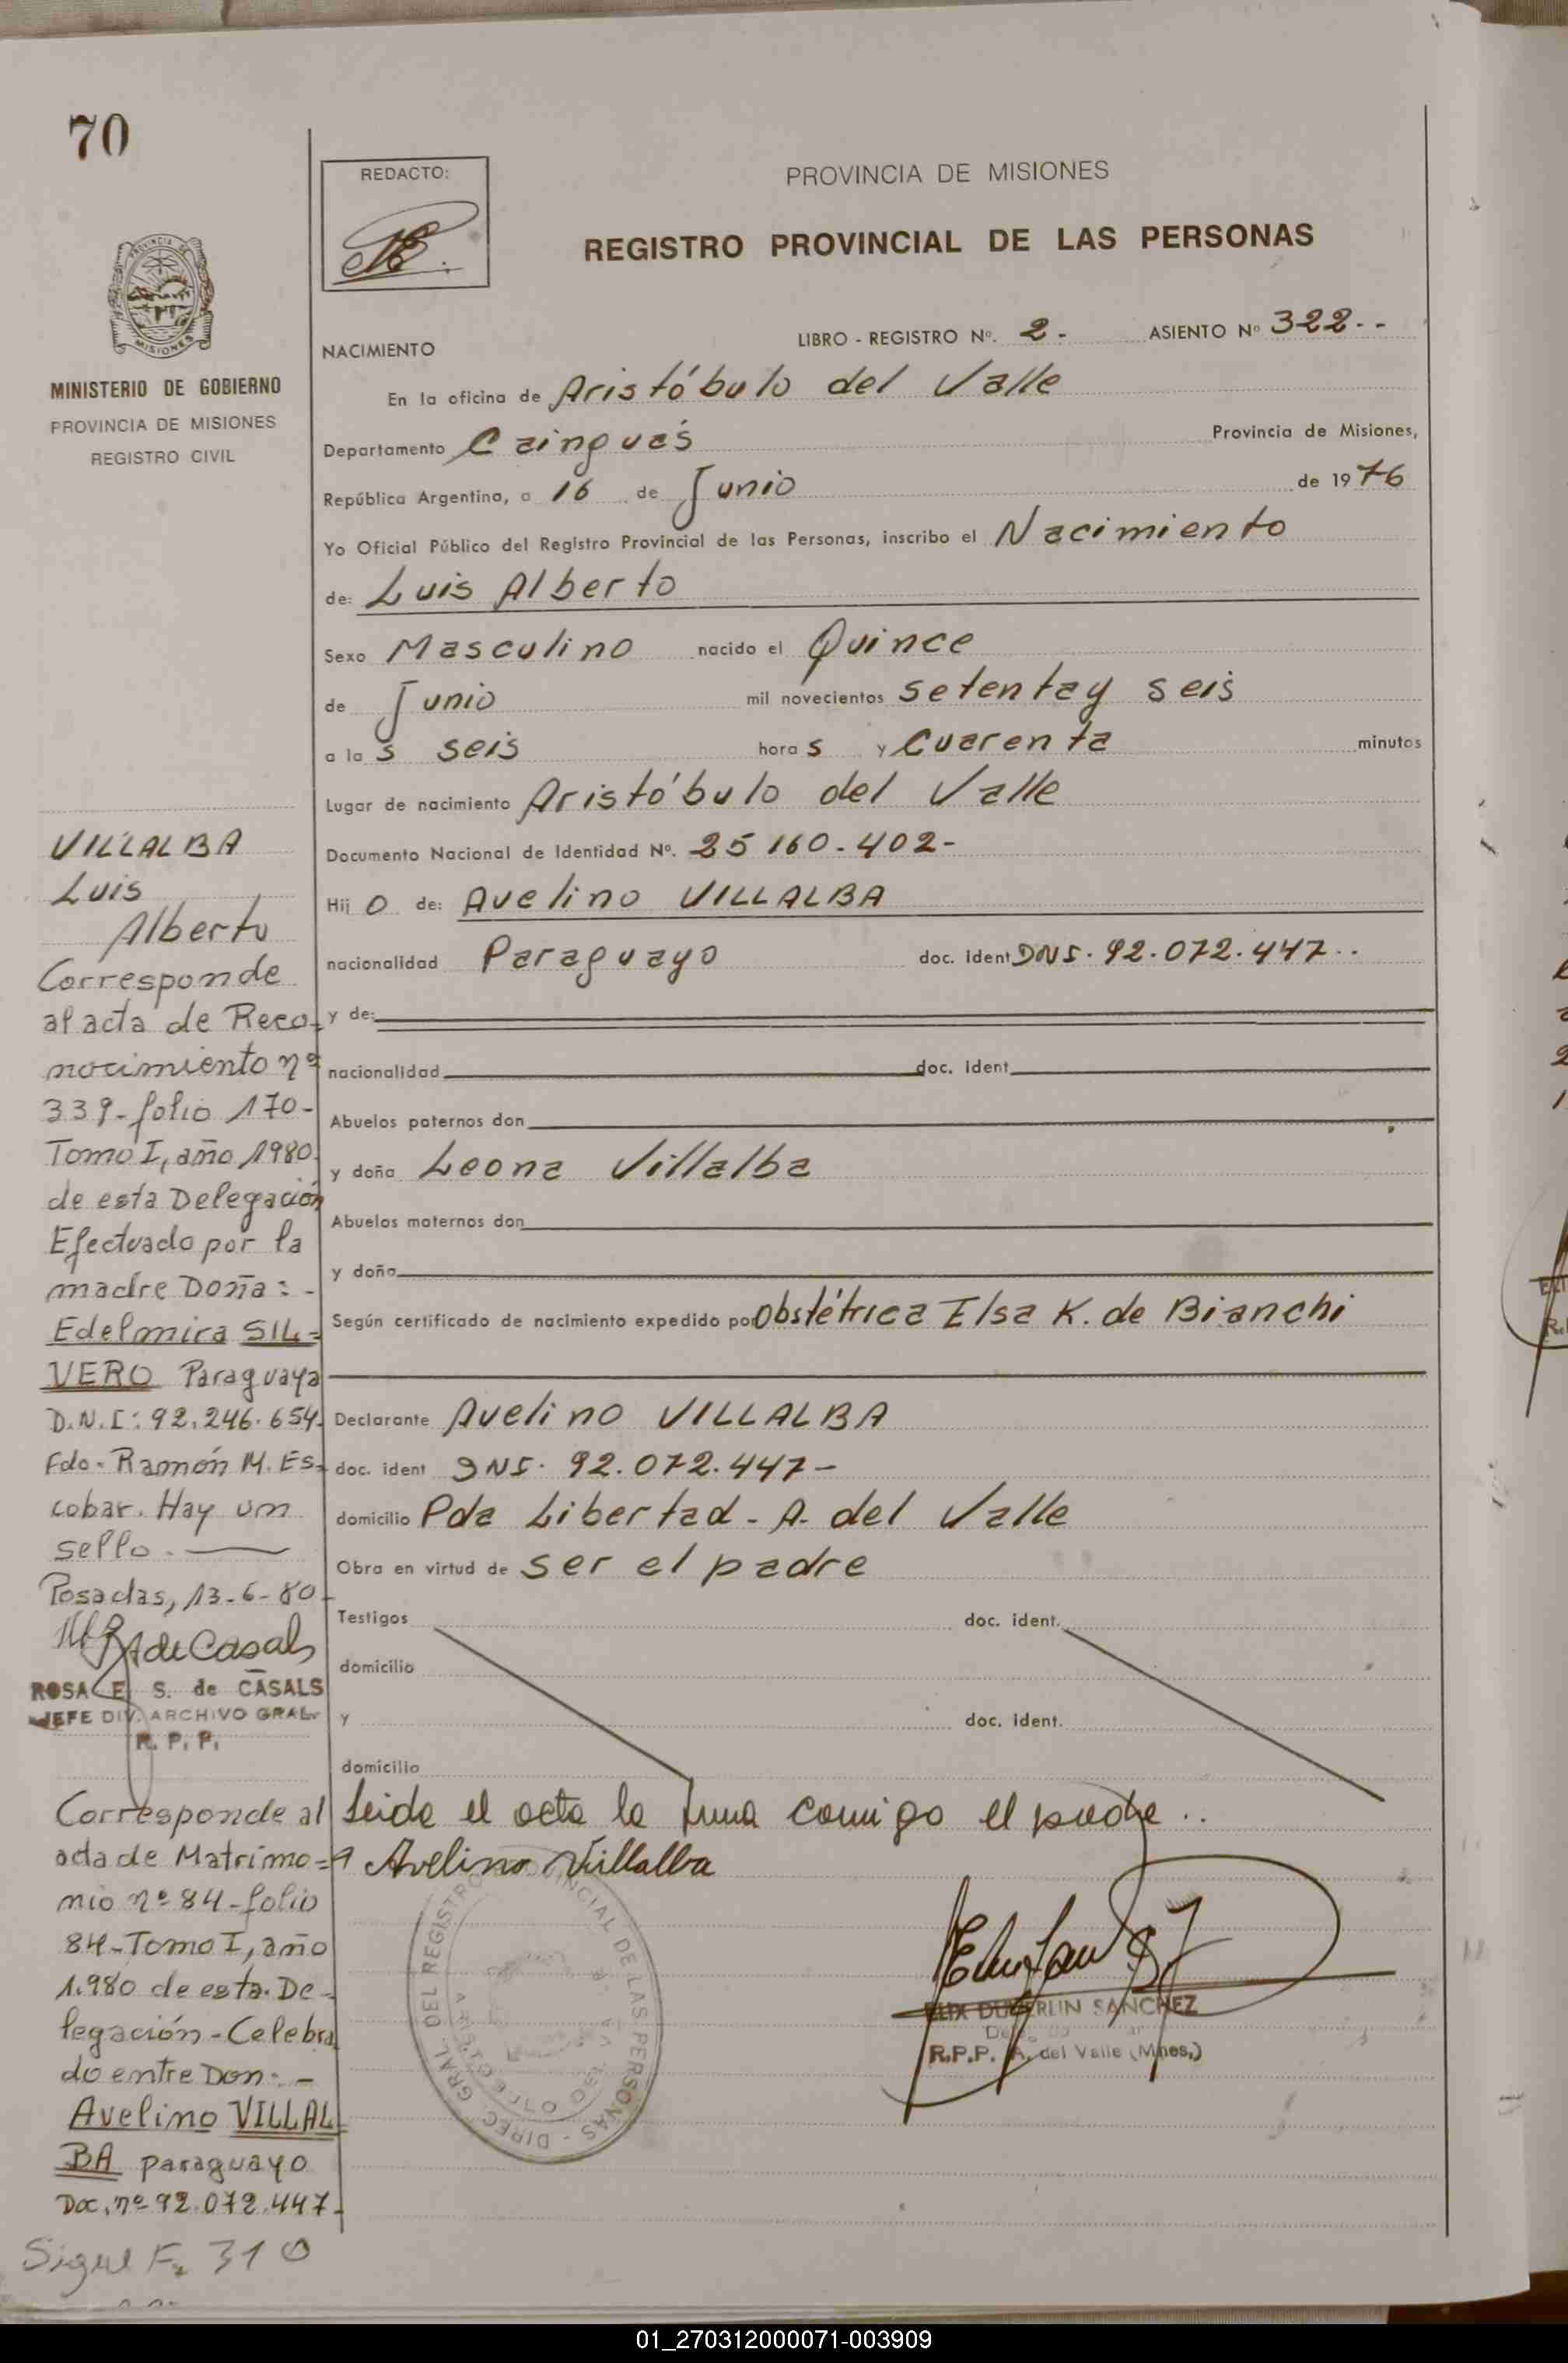 70
REDACTO:
PROVINCIA DE MISIONES
REGISTRO PROVINCIAL DE LAS PERSONAS
PROVINCIA DE
MISIONES
MINISTERIO DE GOBIERNO
PROVINCIA DE MISIONES
REGISTRO CIVIL
LIBRO - REGISTRO Nº. 2.- ASIENTO Nº 322--
NACIMIENTO
En la oficina de Aristóbulo del Valle
Departamento Cainguás Provincia de Misiones,
República Argentina, a 16 de Junio de 1976
Yo Oficial Público del Registro Provincial de las Personas, inscribo el Nacimiento
de: Luis Alberto
Sexo Masculino nacido el Quince
de Junio mil novecientos setenta y seis
a las seis horas y Cuarenta minutos
Lugar de nacimiento Aristóbulo del Valle
Documento Nacional de Identidad Nº. 25 160.402-
Hijo de: Avelino VILLALBA
nacionalidad Paraguayo doc. ident DNI. 92.072.447--
y de:
nacionalidad doc. ident
Abuelos paternos don
y doña Leona Villalba
Abuelos maternos don
y doña
Según certificado de nacimiento expedido por Obstétrica Elsa K. de Bianchi
Declarante Avelino VILLALBA
doc. ident DNI. 92.072.447-
domicilio Pda Libertad - A. del Valle
Obra en virtud de ser el padre
Testigos doc. ident.
domicilio
y doc. ident.
domicilio
Leida el acta la firma comigo el padre..
Avelino Villalba
DIREC. GRAL. DEL REGISTRO PROVINCIAL DE LAS PERSONAS
SANCHEZ
R.P.P. A. del Valle (Mnes.)
VILLALBA
Luis
Alberto
Corresponde
al acta de Reco-
nocimiento nº
339-folio 170-
Tomo I, año 1980
de esta Delegación
Efectuado por la
madre Doña: -
Edelmira SIL=
VERO Paraguaya
D.N.I: 92.246.654
Fdo. Ramón M. Es-
cobar. Hay un
sello.
Posadas, 13-6-80
de Casals
ROSA E. S. de CASALS
JEFE DIV. ARCHIVO GRAL.
R. P. P.
Corresponde al
acta de Matrimo=
nio nº 84-folio
84-Tomo I, año
1.980 de esta De-
legación-Celebra
do entre Don:-
Avelino VILLAL
BA paraguayo
Doc. nº 92.072.447-
Sigue F. 310
01_270312000071-003909